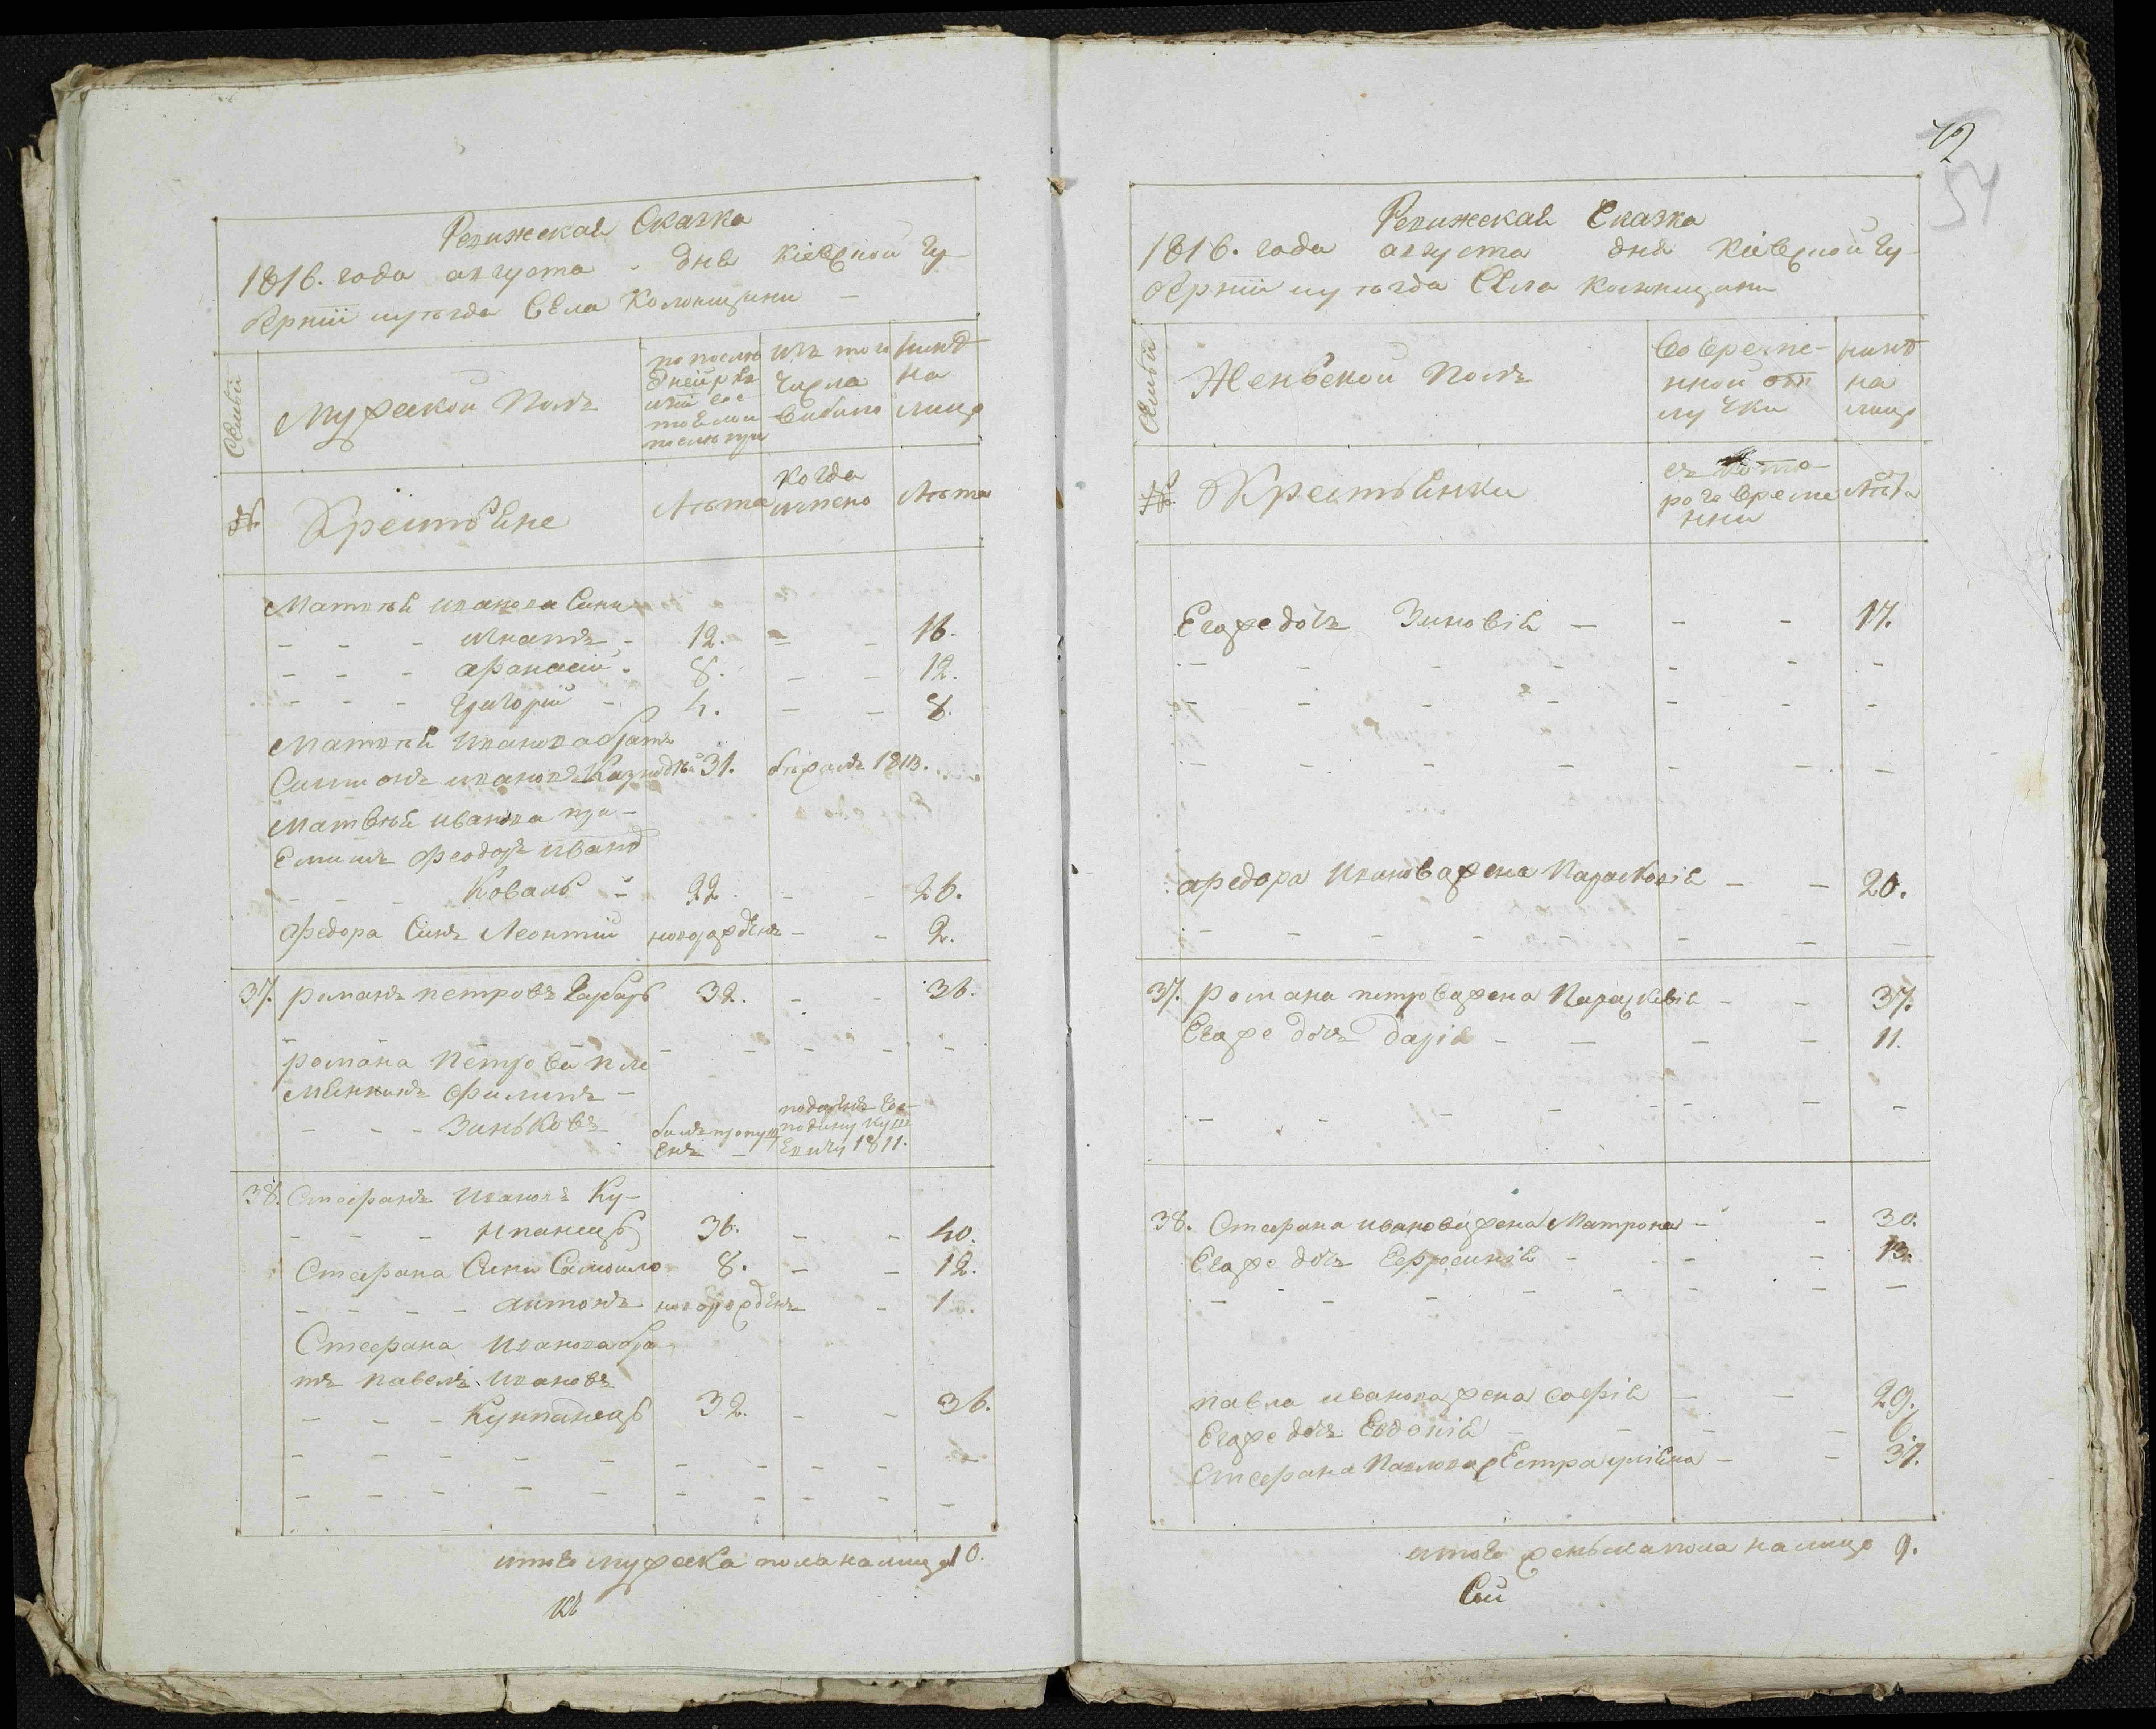 Ревижская Сказка
1816. года августа дня Кіевской Гу-
берніи уѣзда Села Колонщини
Семьи
Мужескои Полъ
по послѣ
дней рѣв
изіи сос
тояло и
послѣ при
изъ того
числа
выбыло
нинѣ
на
лицо
№
Крестьяне
Лѣта
когда
имяно
Лѣта
Матвѣя иванова Сини
- - - Игнатъ - 12. - - 16.
- - - афанасій - 8. - - 12.
- - - Григорій - 4. - - 8.
Матвѣя Иванова братъ
Симионъ ивановъ 31. бѣжалъ 1813.
Матвѣя иванова при-
емишъ Феодоръ иванов
- - - Коваль - 22 - - 26.
Федора Синъ Леонтій новорожденъ - - 2.
37. романъ петровъ Гарбарь 32. - - 36.
романа Петрова пле
мянникъ Филипъ -
- - - Зиньковъ билъ пропущ
енъ -
подаренъ Гос-
подину Кущ
Евичу 1811.
38. Стефанъ Ивановъ Ку-
- - - 36. - - 40.
Стефана Сини Самойло 8. - - 12.
- - - - антонъ новорожденъ - 1.
Стефана Иванова бра
тъ павелъ Ивановъ
- - - 32. - - 36.
итого мужеска пола на лицо 10.
72
51
Ревижская Сказка
1816. года августа дня Кіевской Гу-
берніи уѣзда Села Колонщини
Семьи
Женьской Полъ
Во време-
нной отъ
лучки
нинѣ
на
лицо
№
Крестьянки
съ кото-
рого време
нни
Лѣта
Его же дочь Зиновія - - - 17.
афедора Иванова жена Параскевія - - 20.
37. Романа петрова жена Параскевія - - 37.
Его же дочь Дарія - - - - 11.
38. Стефана иванова жена Матрона - - 30.
Его же дочь Ефросинія - - - 13.
павла иванова жена софія - - 29.
Его же дочь Евдокія - - - - 6.
Стефана Павлова Сестра уліяна - - 37.
итого женьска пола на лицо 9.
Сій